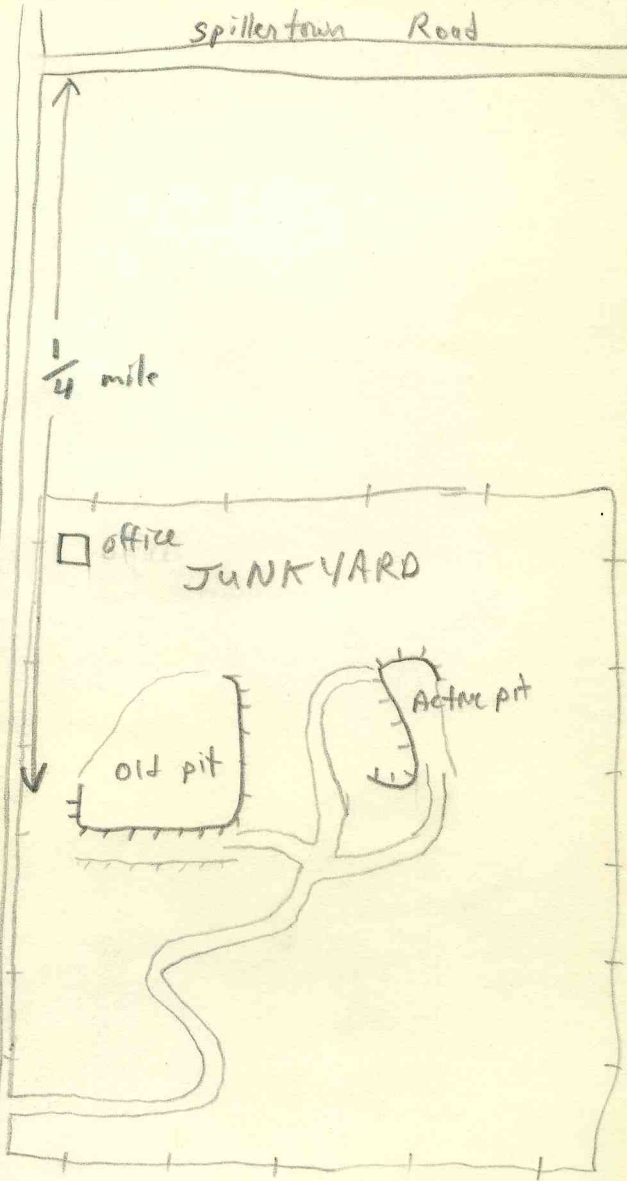 Spillertown Road
1/4 mile
office
JUNKYARD
Active pit
old pit